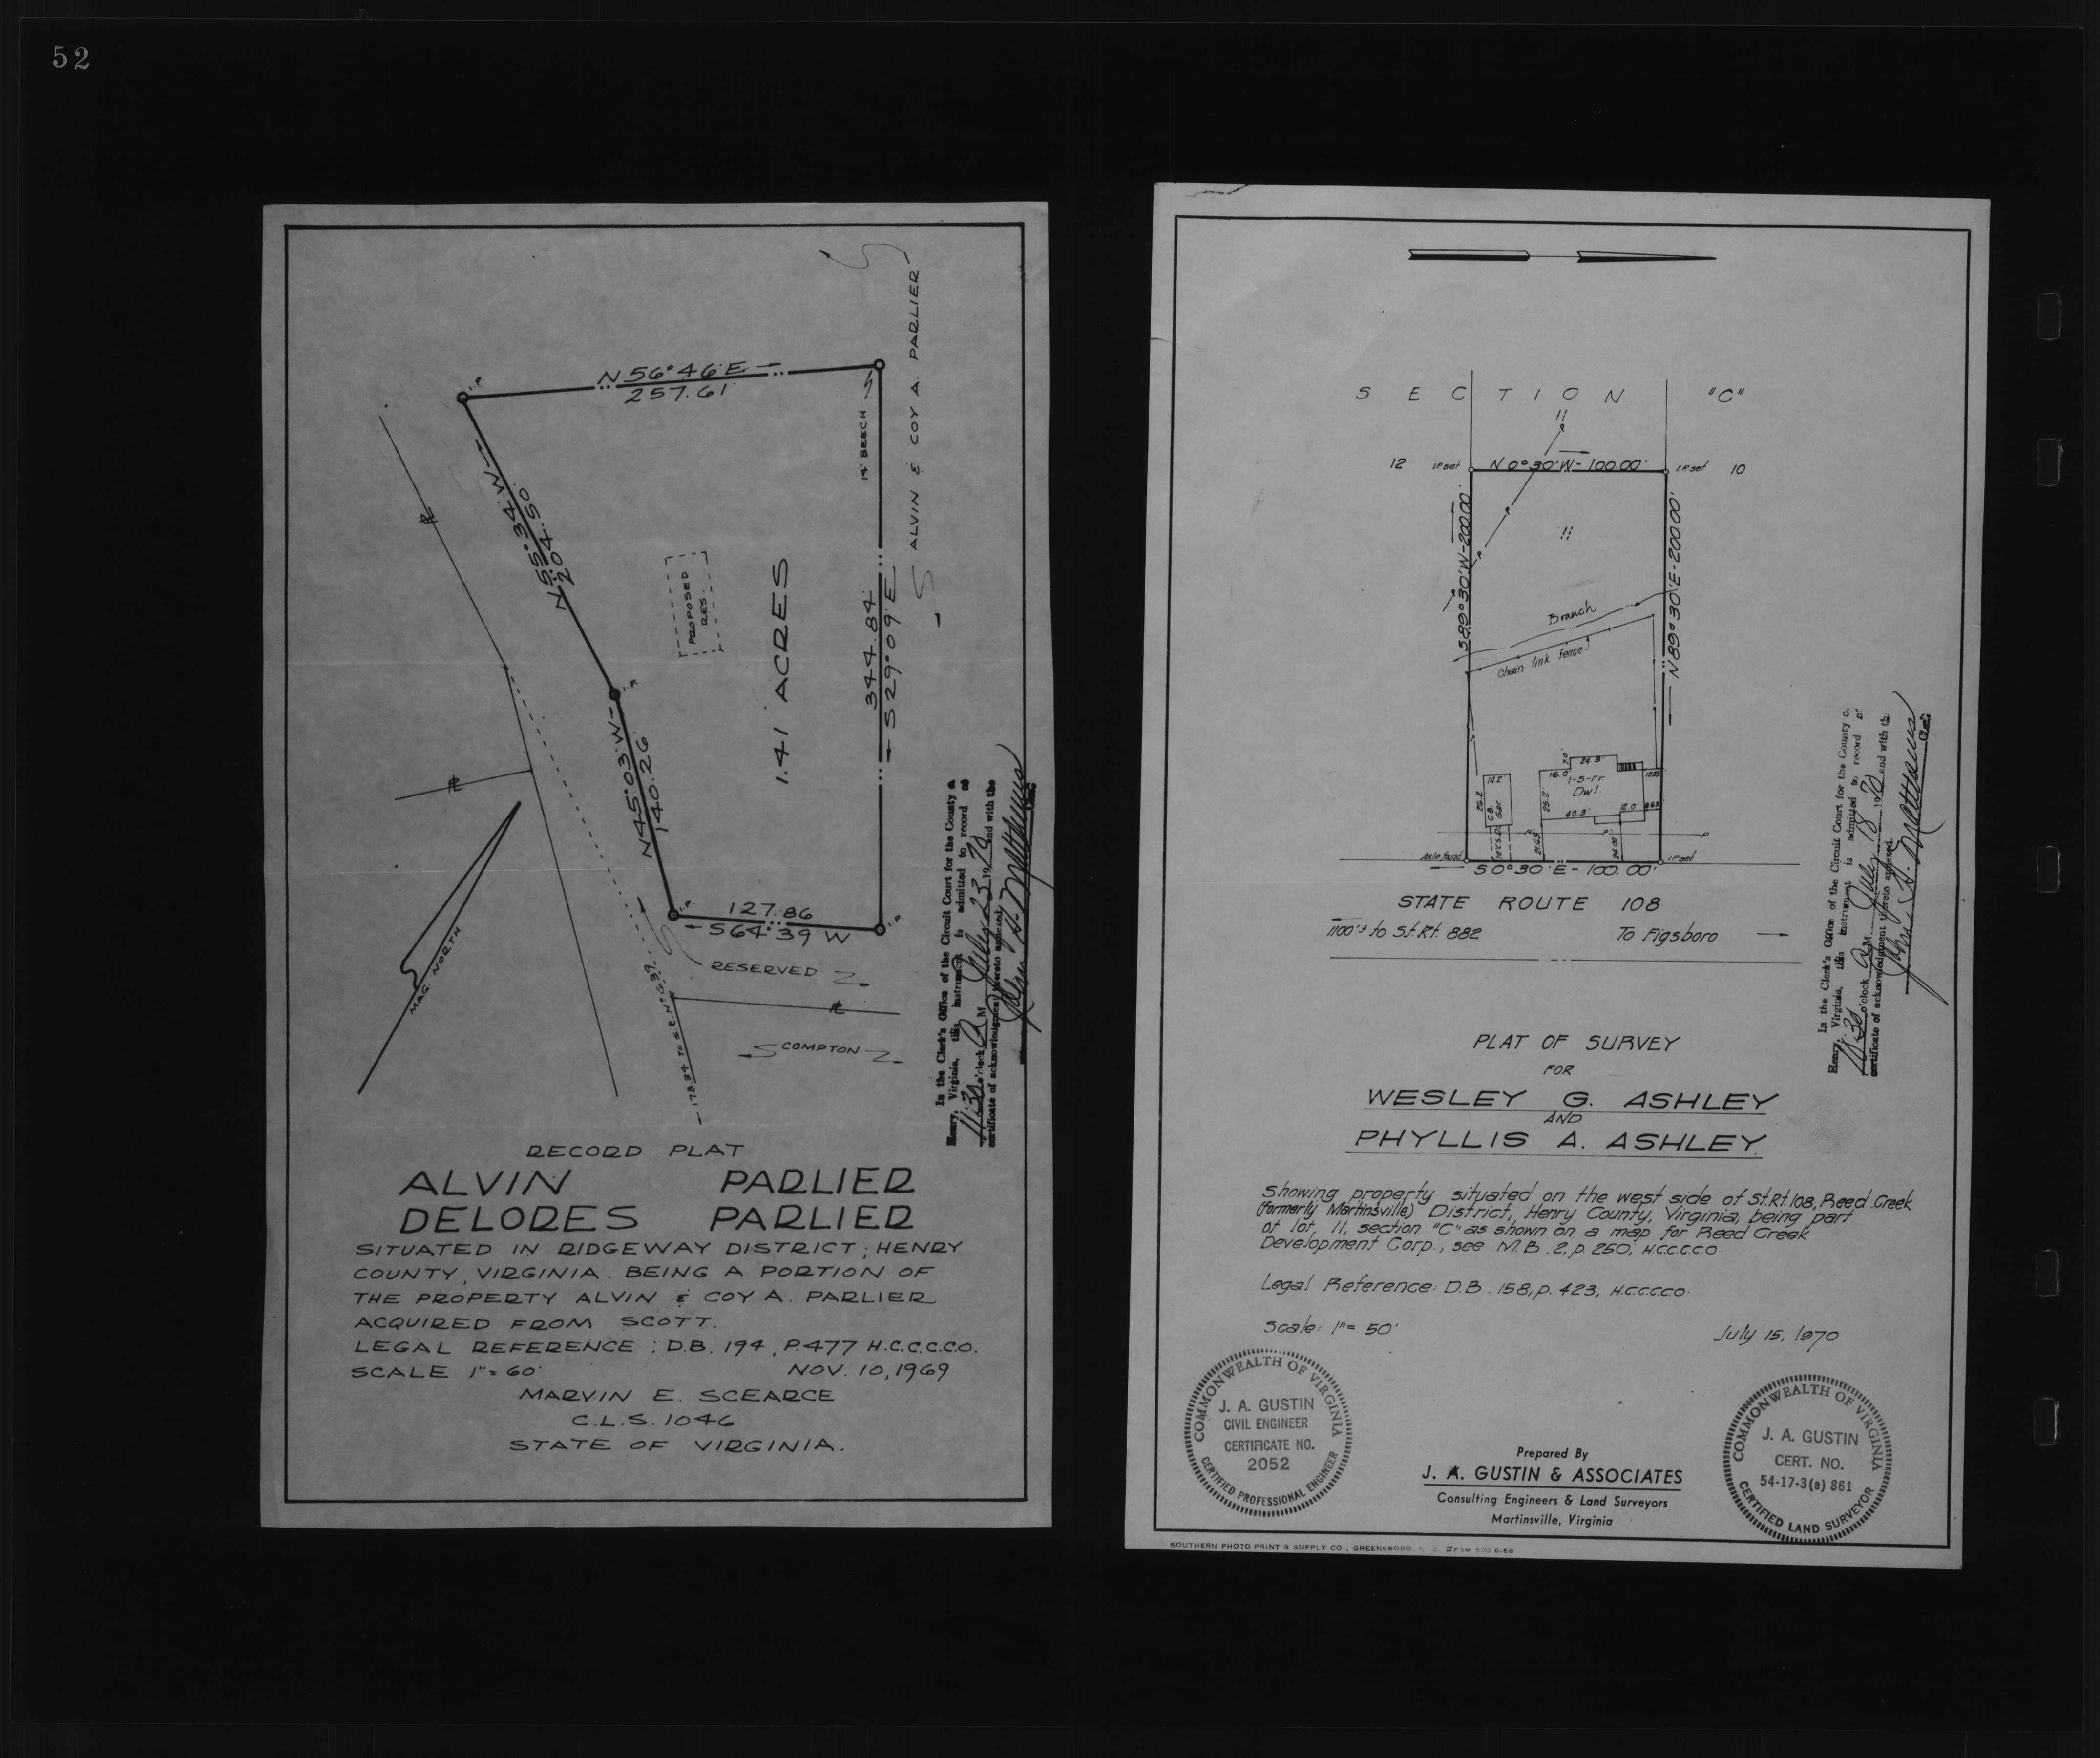 52
ALVIN & COY A. PARLIER
N 56° 46' E
257.61'
I.P.
14" BEECH
N 55° 34' W
204.50'
PROPOSED
RES.
1.41 ACRES
344.84
S 29° 09' E
I.P.
N 45° 03' W
140.26'
127.86
S 64° 39' W
I.P.
I.P.
MAG NORTH
RESERVED
COMPTON
In the Clerk's Office of the Circuit Court for the County o
Henry, Virginia, this instrument is admitted to record at
11:30 o'clock A M July 23 1970 and with the
certificate of acknowledgment thereto annexed.
John H. Matthews
Clerk
RECORD PLAT
ALVIN PARLIER
DELORES PARLIER
SITUATED IN RIDGEWAY DISTRICT, HENRY
COUNTY, VIRGINIA. BEING A PORTION OF
THE PROPERTY ALVIN & COY A. PARLIER
ACQUIRED FROM SCOTT.
LEGAL REFERENCE : D.B. 194, P.477 H.C.C.C.CO.
SCALE 1"= 60' NOV. 10, 1969
MARVIN E. SCEARCE
C.L.S. 1046
STATE OF VIRGINIA.
SECTION "C"
11
12 I.P. set N 0° 30' W - 100.00' I.P. set 10
S 89° 30' W - 200.00'
11
N 89° 30' E - 200.00'
Branch
Chain link fence
24.3'
16.0'
1-S-Fr.
Dwl.
14.2
25.2
C.B.
Gar.
25.2'
40.3'
12.0'
Axle found
I.P. set
S 0° 30' E - 100.00'
STATE ROUTE 108
1100'± to St. Rt. 882 To Figsboro
In the Clerk's Office of the Circuit Court for the County o.
Henry, Virginia, this instrument is admitted to record at
11:30 o'clock A M. July 18 1970 and with th
certificate of acknowledgment thereto annexed.
John H. Matthews
Clerk
PLAT OF SURVEY
FOR
WESLEY G. ASHLEY
AND
PHYLLIS A. ASHLEY.
Showing property situated on the west side of St. Rt. 108, Reed Creek
(formerly Martinsville) District, Henry County, Virginia, being part
of lot 11, section "C" as shown on a map for Reed Creek
Development Corp., see M.B. 2, p. 250, H.C.C.C.CO.
Legal Reference: D.B. 158, p. 423, H.C.C.C.CO.
Scale: 1"= 50' July 15, 1970
COMMONWEALTH OF VIRGINIA
J. A. GUSTIN
CIVIL ENGINEER
CERTIFICATE NO.
2052
CERTIFIED PROFESSIONAL ENGINEER
Prepared By
J. A. GUSTIN & ASSOCIATES
Consulting Engineers & Land Surveyors
Martinsville, Virginia
COMMONWEALTH OF VIRGINIA
J. A. GUSTIN
CERT. NO.
54-17-3(a) 861
CERTIFIED LAND SURVEYOR
SOUTHERN PHOTO PRINT & SUPPLY CO., GREENSBORO, N. C. #P3M 500 6-68